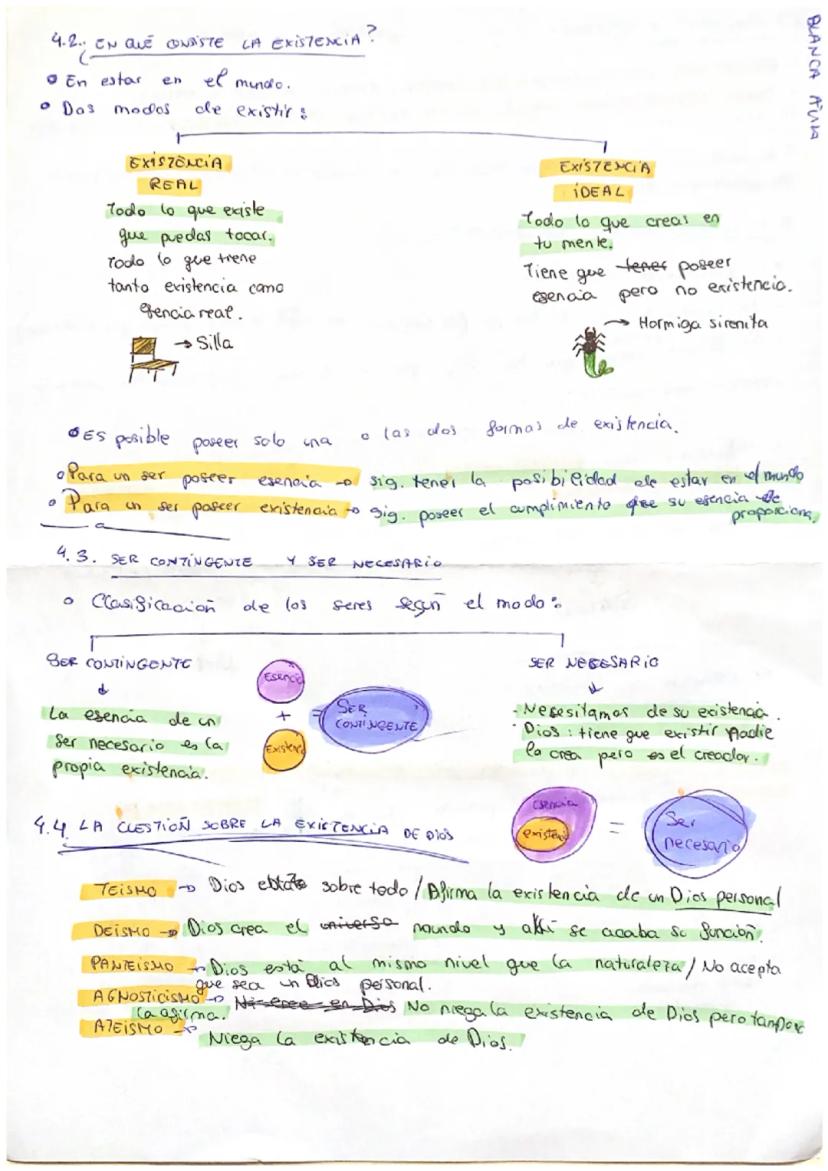 BLANCA AVILA
4.2. EN QUÉ CONSISTE LA EXISTENCIA?
• En estar en el mundo.
• Dos modos de existir:
EXISTENCIA
REAL
Todo lo que existe
que puedas tocar.
Todo lo que tiene
tanto existencia como
esencia real.
→ Silla
EXISTENCIA
IDEAL
Todo lo que creas en
tu mente.
Tiene que tener poseer
esencia pero no existencia.
→ Hormiga sirenita
• Es posible poseer solo una o las dos formas de existencia.
• Para un ser poseer esencia → sig. tener la posibilidad de estar en el mundo
• Para un ser poseer existencia → sig. poseer el cumplimiento que su esencia le
proporciona.
4.3. SER CONTINGENTE Y SER NECESARIO
• Clasificación de los seres según el modo:
SER CONTINGENTE
↓
La esencia de un
ser necesario es la
propia existencia.
Esencia
+
Existen
=
SER
CONTINGENTE
SER NECESARIO
↓
- Necesitamos de su existencia.
· Dios: tiene que existir Nadie
lo crea pero es el creador.
esencia
existenci
=
Ser
necesario
4.4 LA CUESTIÓN SOBRE LA EXISTENCIA DE DIOS
TEÍSMO → Dios sobre todo / Afirma la existencia de un Dios personal
DEÍSMO → Dios crea el universo mundo y ahí se acaba su función.
PANTEÍSMO → Dios está al mismo nivel que la naturaleza / No acepta
que sea un Dios personal.
AGNOSTICISMO → Ni cree en Dios No niega la existencia de Dios pero tampoco
la afirma.
ATEÍSMO → Niega la existencia de Dios.